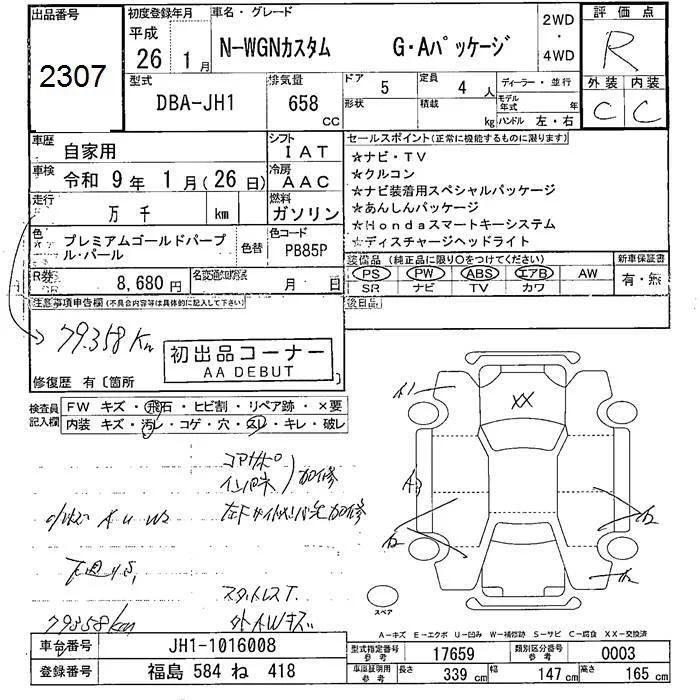 出品番号
2307
初度登録年月
平成
26年 1月
車名・グレード
N-WGNカスタム G・Aパッケージ
2WD
・
4WD
評価点
R
外装 内装
C C
型式
DBA-JH1
排気量
658
CC
ドア 5
形状
定員 4 人
積載 kg
ディーラー・並行
モデル年式 年
ハンドル 左・右
車歴
自家用
シフト
IAT
車検
令和 9年 1月(26日)
冷房
AAC
走行
万 千 km
燃料
ガソリン
色
プレミアムゴールドパープル・パール
色替
色コード
PB85P
R券
8,680円
名変期限
月 日
セールスポイント(正常に機能するものに限ります)
☆ナビ・TV
☆クルコン
☆ナビ装着用スペシャルパッケージ
☆あんしんパッケージ
☆Hondaスマートキーシステム
☆ディスチャージヘッドライト
装備品 (純正品に限り○をつけてください)
PS PW ABS エアB AW
SR ナビ TV カワ
新車保証書
有・無
後日品
注意事項申告欄(不具合内容等は具体的に記入して下さい)
79.358Km
初出品コーナー
AA DEBUT
修復歴 有〔箇所 〕
検査員記入欄
FW キズ・飛石・ヒビ割・リペア跡・×要
内装 キズ・汚レ・コゲ・穴・スレ・キレ・破レ
コアサポ
インパネ
加修
加修
下廻り
79358km
外イルWキズ
A1
XX
A2
スペア
A-キズ E-エクボ U-凹み W-補修跡 S-サビ C-腐食 XX-交換済
車台番号
JH1-1016008
登録番号
福島 584 ね 418
型式指定番号
参考
17659
類別区分番号
参考
0003
車庫証明用
参考
長さ 339 cm
幅 147 cm
高さ 165 cm